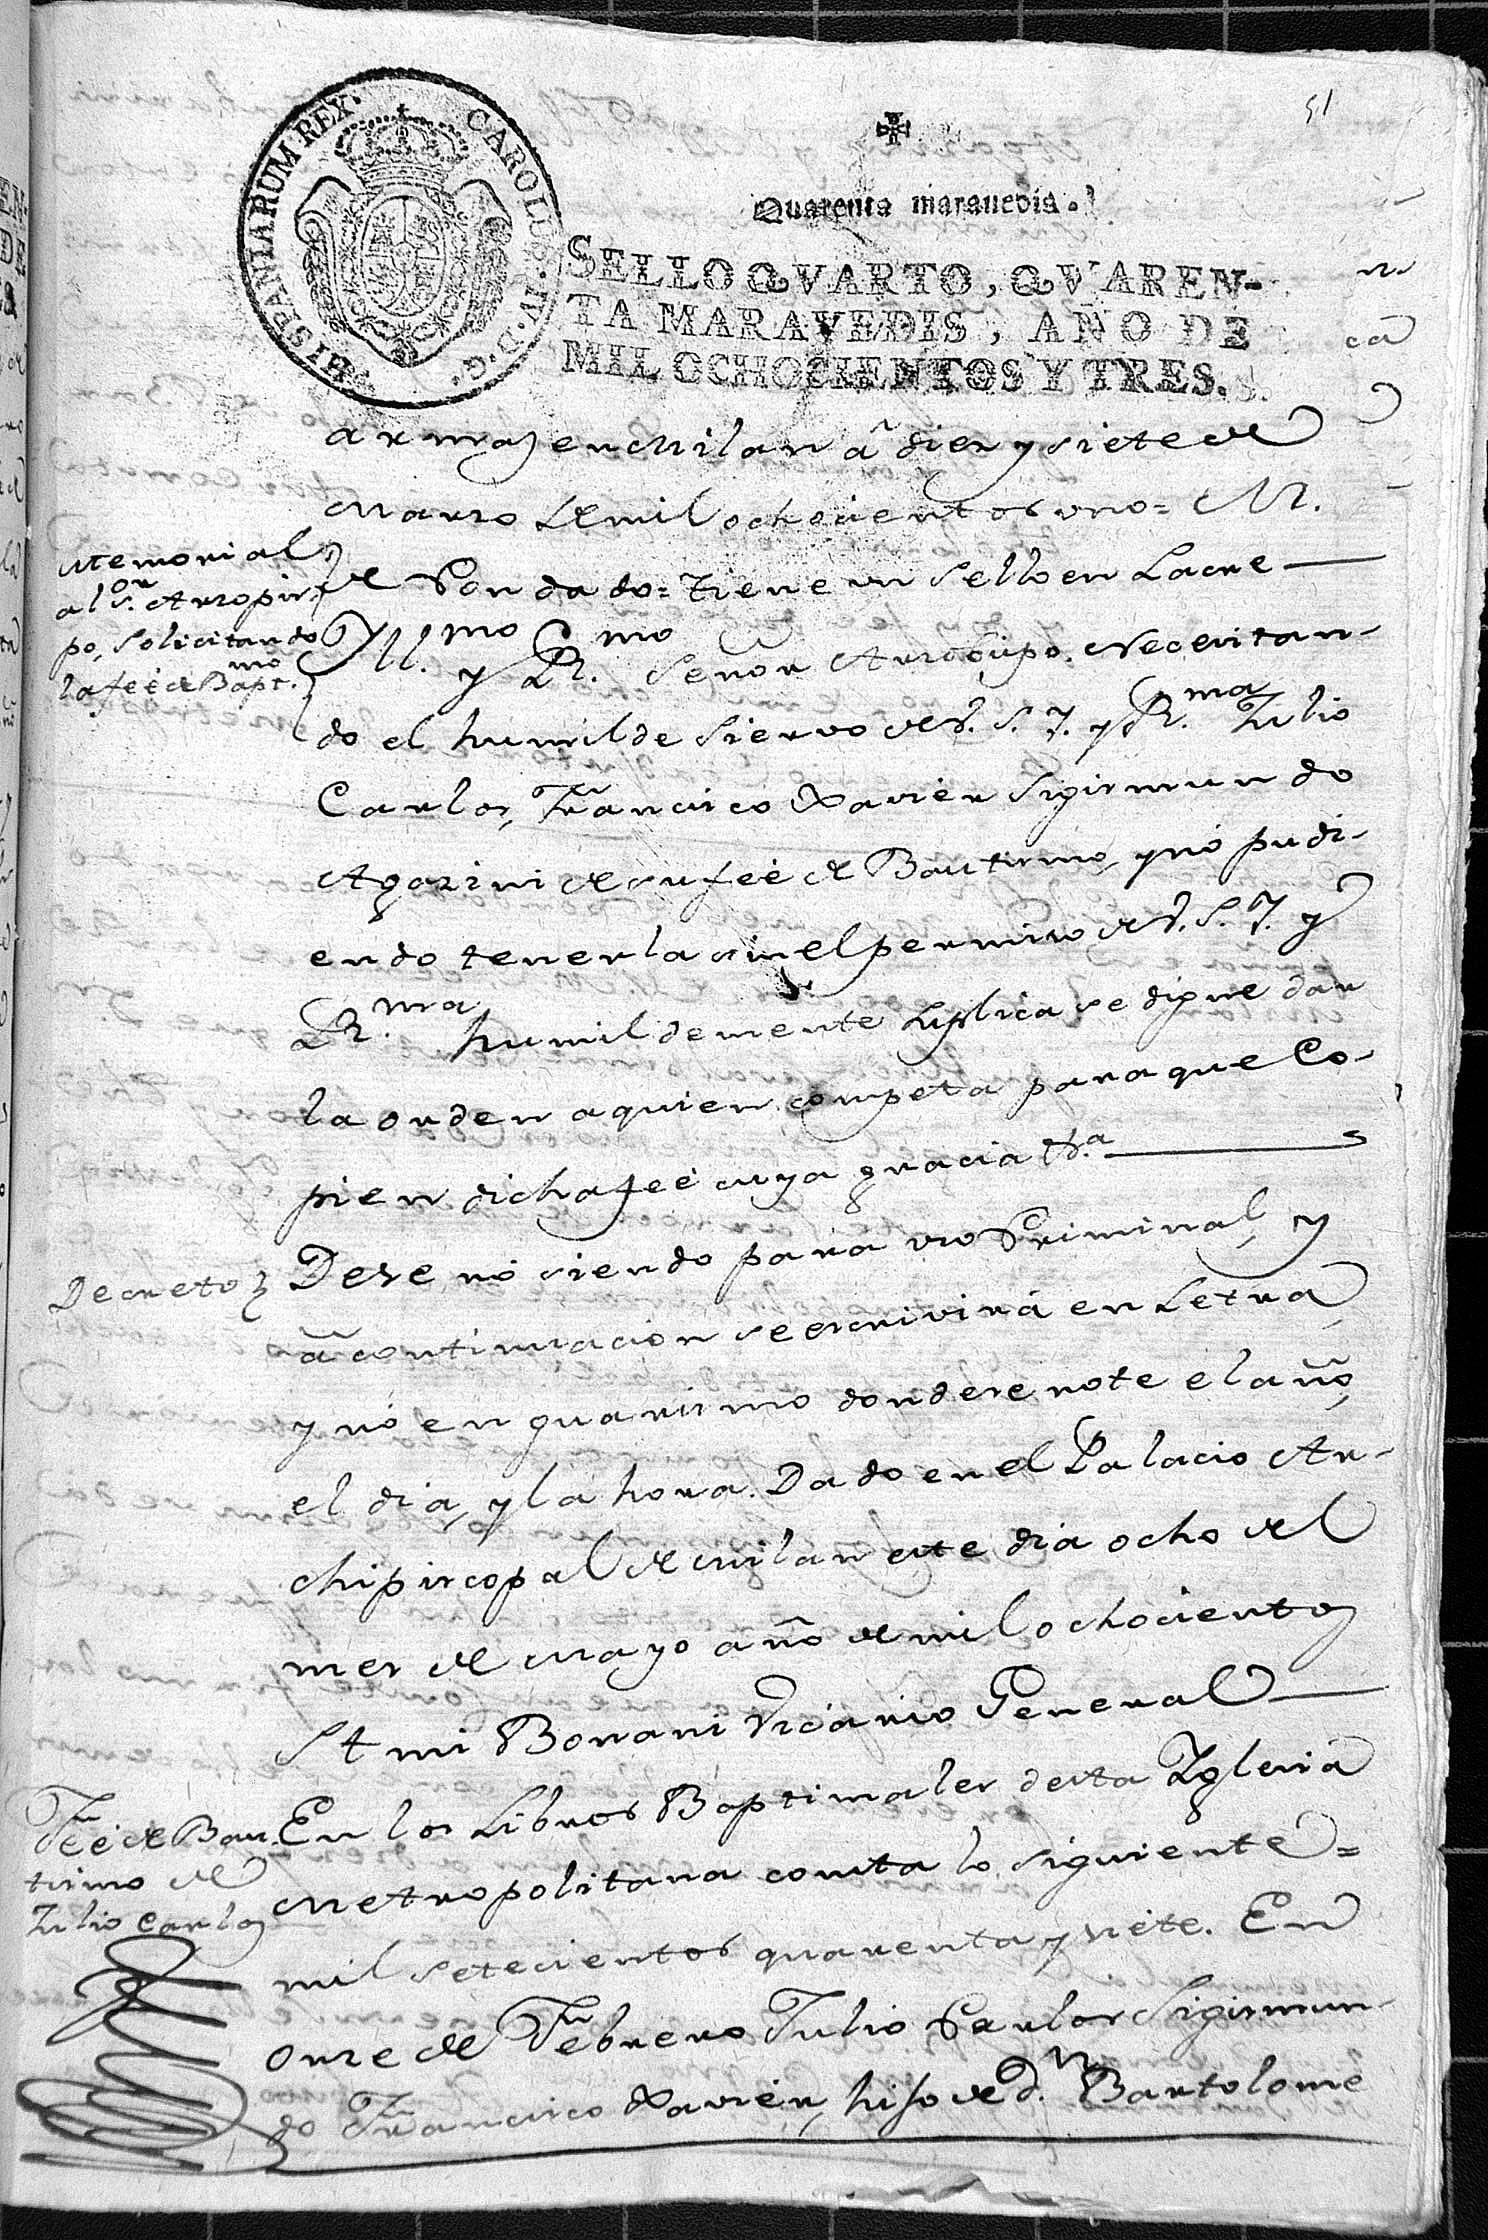 51
HISPANIARUM REX. CAROLUS IV. D. G.
Quarenta maravedis.
SELLO QVARTO, QVAREN-
TA MARAVEDIS, AÑO DE
MIL OCHOCIENTOS Y TRES.
armas en Milan â diez y siete de
Marzo de mil ochocientos uno= M.
de Pondado= Tiene un Sello en Lacre
Memorial
al S.or Arzopis-
po, solicitando
la feé de Bapt.mo
Yll.mo y R.mo Señor Arzobispo. Necesitan-
do el humilde siervo de V. S. Y. y R.ma Julio
Carlos, Francisco Xavier Sigismundo
Agazini de su feé de Bautismo, y nó pudi-
endo tenerla sin el permiso de V. S. Y. y
R.ma humildemente suplica se digne dar
la orden a quien competa para que Co-
pien dicha feé cuya gracia &.a
Decreto
Dese nó siendo para uso Criminal, y
â continuacion se escrivirá en Letra
y nó en guarismo donde se note el año,
el dia, y la hora. Dado en el Palacio Ar-
chipiscopal de Milan este dia ocho del
mes de Mayo año de mil ochocientos
St mi Bonani Vicario General
Feé de Bau-
tismo de
Julio Carlos
En los Libros Baptimales desta Yglesia
Metropolitana consta lo siguiente=
mil setecientos quarenta y siete. En
onze de Febrero Julio Carlos Sigismun-
do Francisco Xavier, hijo de D.n Bartolome